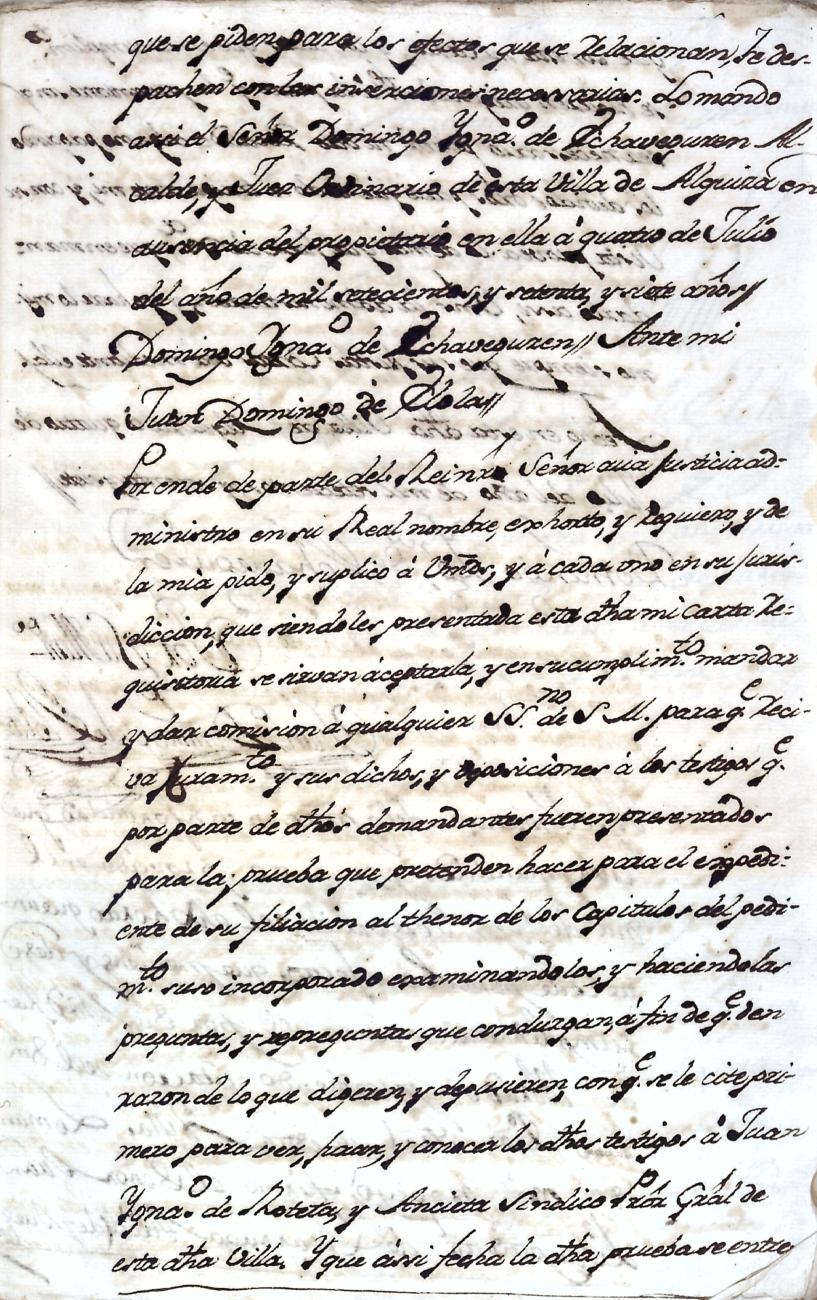 que se piden para los efectos que se relacionan, se des-
pachen con las inserciones necesarias. Lo mando
assi el Señor Domingo Ygnaº. de Echaveguren Al-
calde, y Juez Ordinario de esta Villa de Alquiza en
ausencia del propietario en ella á quatro de Julio
del año de mil setecientos, y setenta, y siete años//
Domingo Ygnaº. de Echaveguren// Ante mi
Juan Domingo de Olola//
Por ende de parte del Rei nrõ Señor cuia Justicia ad-
ministro en su Real nombre, exhorto, y requiero, y de
la mia pido, y suplico á Vmds, y á cada uno en su Juris-
diccion, que siendoles presentada esta dha mi carta re-
quisitoria se sirvan áceptarla, y en su cumplimto. mandar
y dar comision á qualquier SSno. de S. M. para qe. reci-
va Juramto. y sus dichos, y deposiciones á los testigos qe.
por parte de dhos demandantes fueren presentados
para la prueba que pretenden hacer para el expedi-
ente de su filiacion al thenor de los Capitulos del pedi-
mto. suso incorporado examinandolos, y haciendolas
preguntas, y repreguntas que conduzgan, á fin de qe. den
razon de lo que digeren, y depusieren, con qe. se le cite pri-
mero para ver, jurar, y conocer los dhos testigos á Juan
Ygnaº. de Roteta, y Ancieta Sindico Prór Grál de
esta dha Villa. Y que ássi fecha la dha prueba se entre